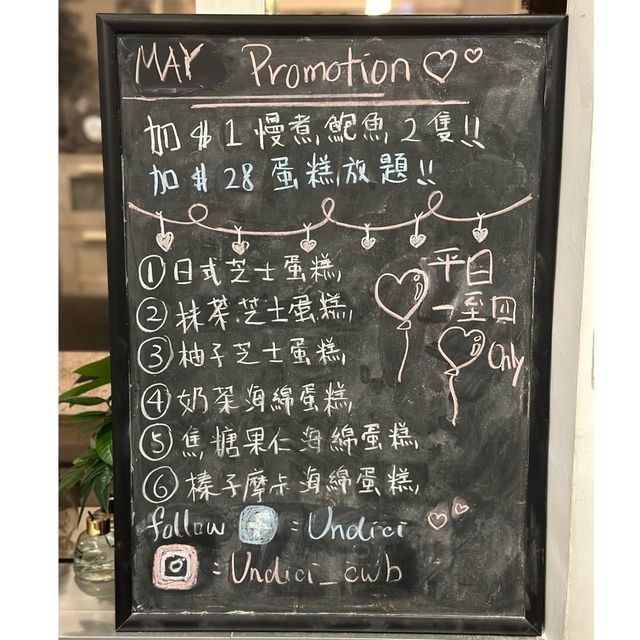 MAY Promotion
加 $1 慢煮鮑魚 2 隻!!
加 $28 蛋糕放題!!
平日
一至四
Only
① 日式芝士蛋糕
② 抹茶芝士蛋糕
③ 柚子芝士蛋糕
④ 奶茶海綿蛋糕
⑤ 焦糖果仁海綿蛋糕
⑥ 榛子摩卡海綿蛋糕
follow f : Undici
: Undici_cwb